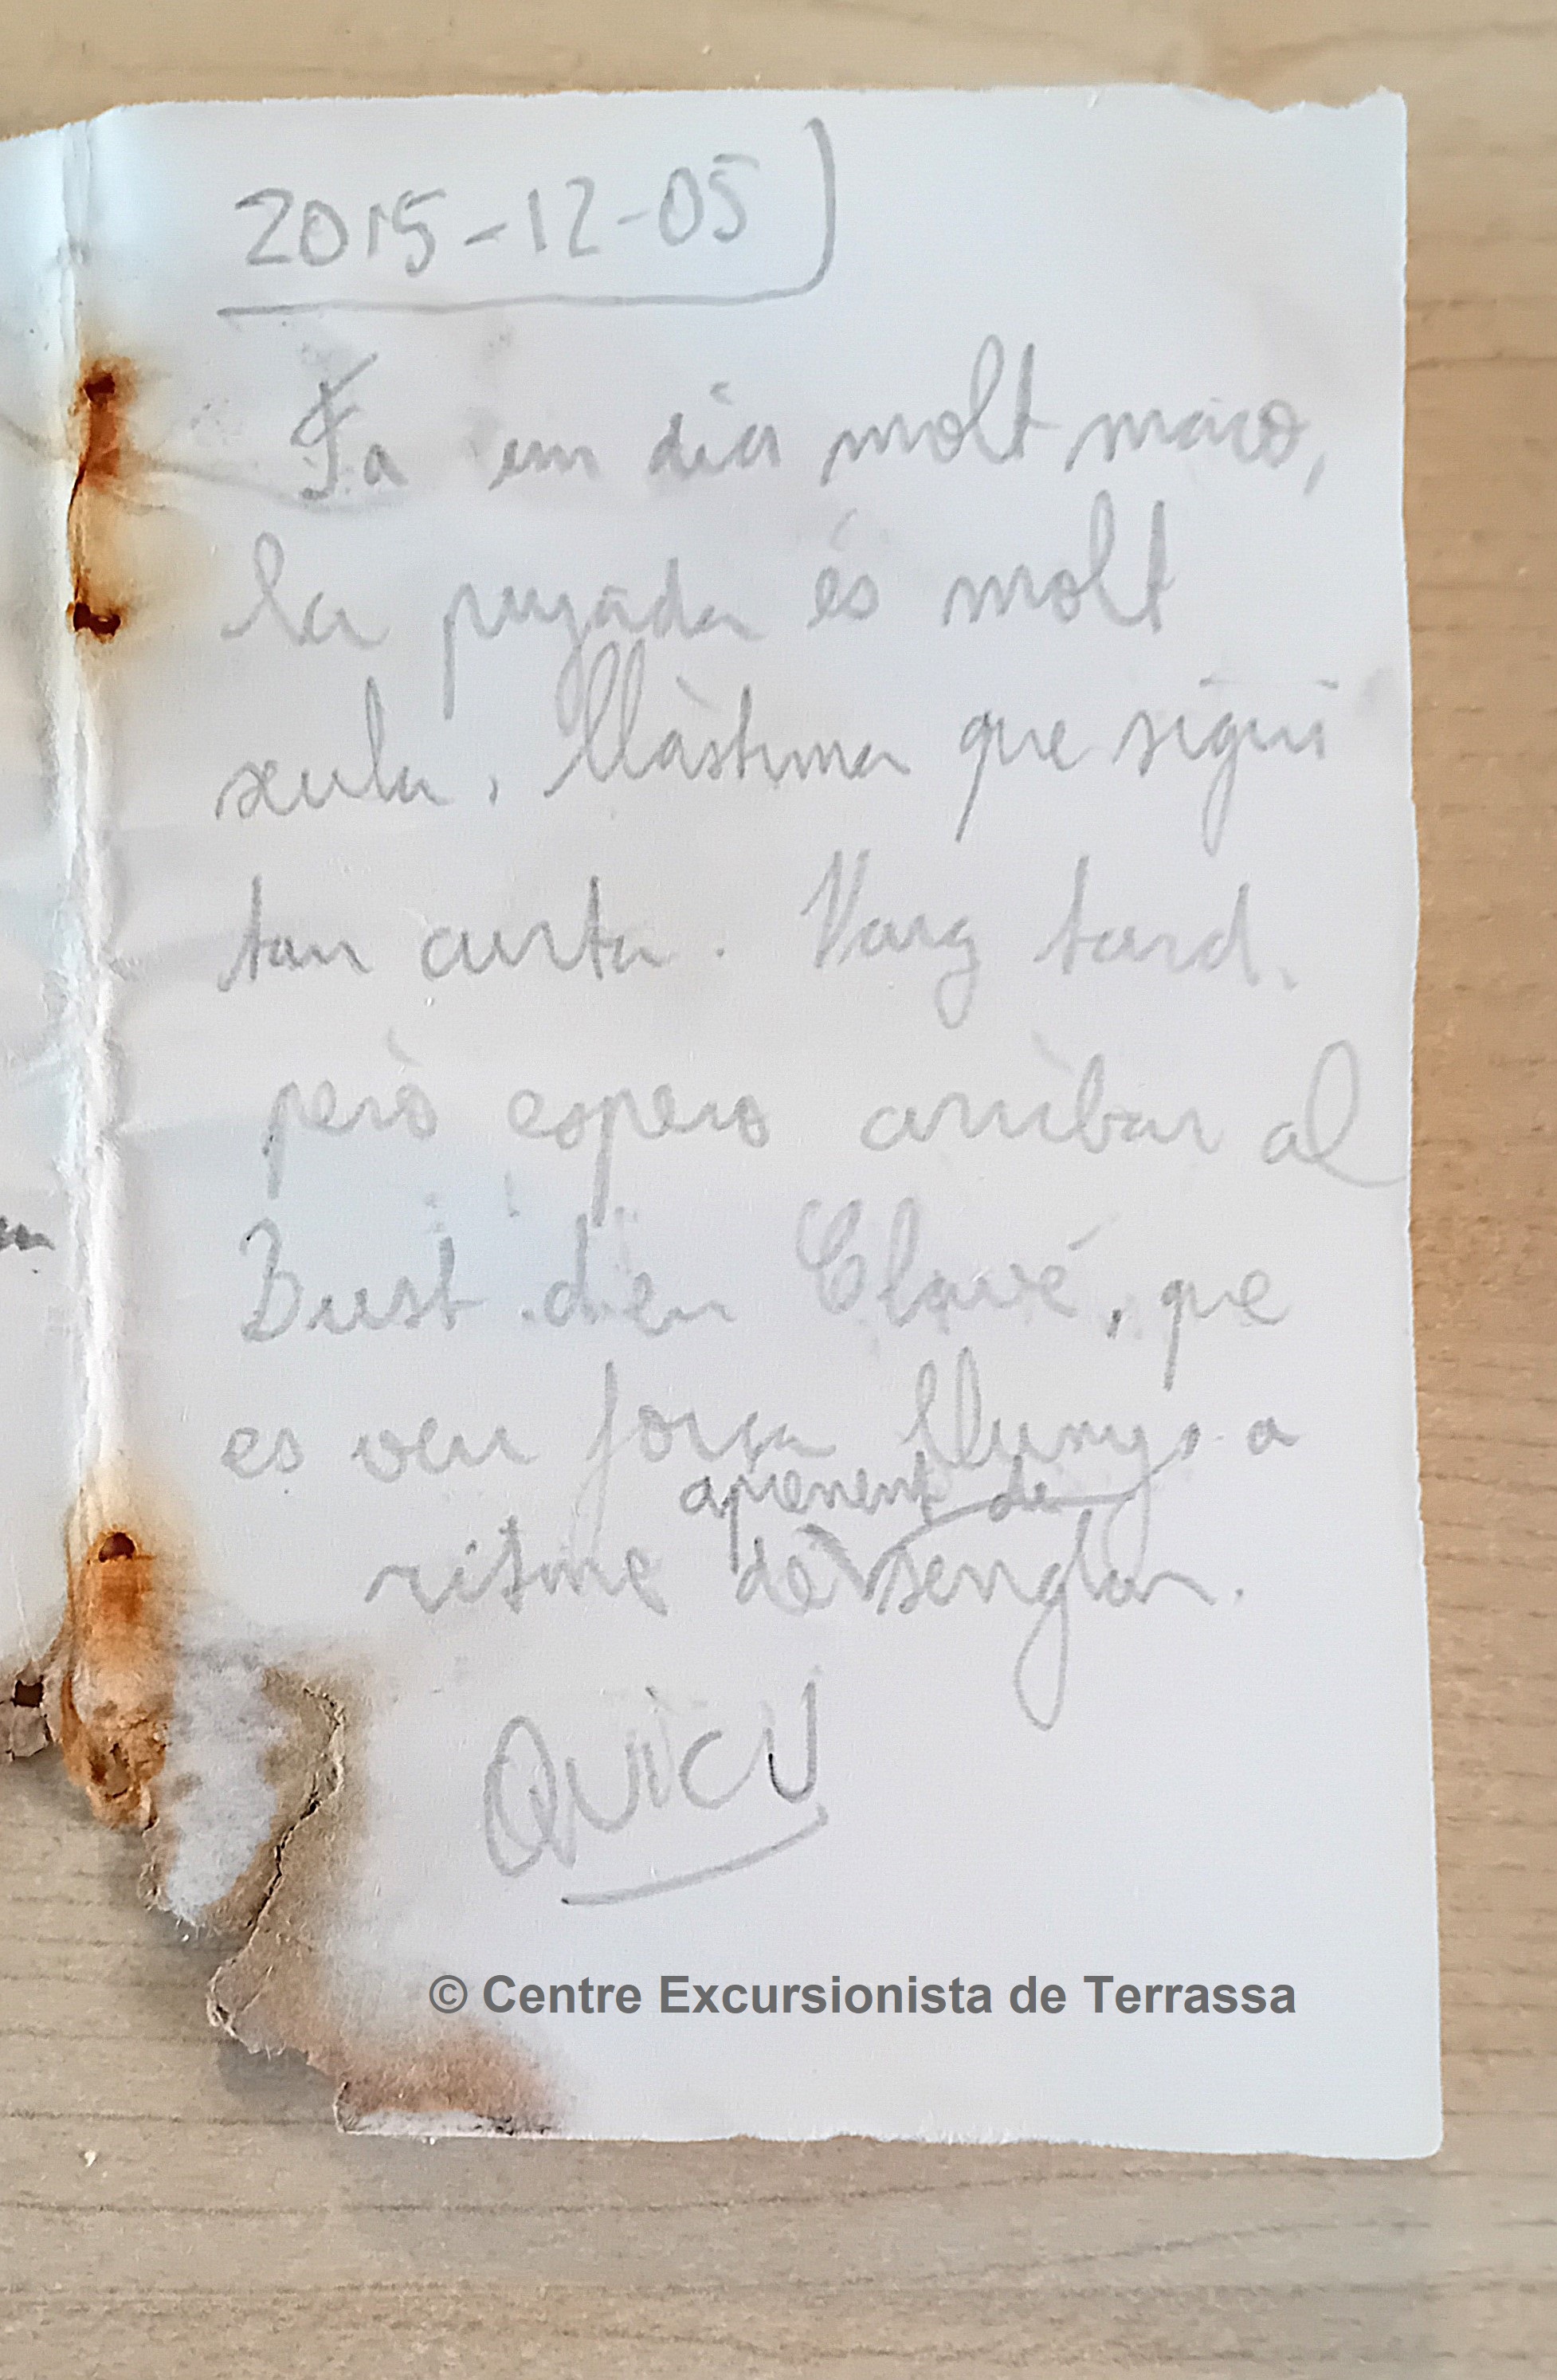 2015-12-05
Fa un dia molt maco,
la pujada és molt
xula, llàstima que sigui
tan curta. Vaig tard,
però espero arribar al
Bust d'en Clavé, que
es veu força lluny, a
aprenent de
ritme de senglar.
QUICU
© Centre Excursionista de Terrassa